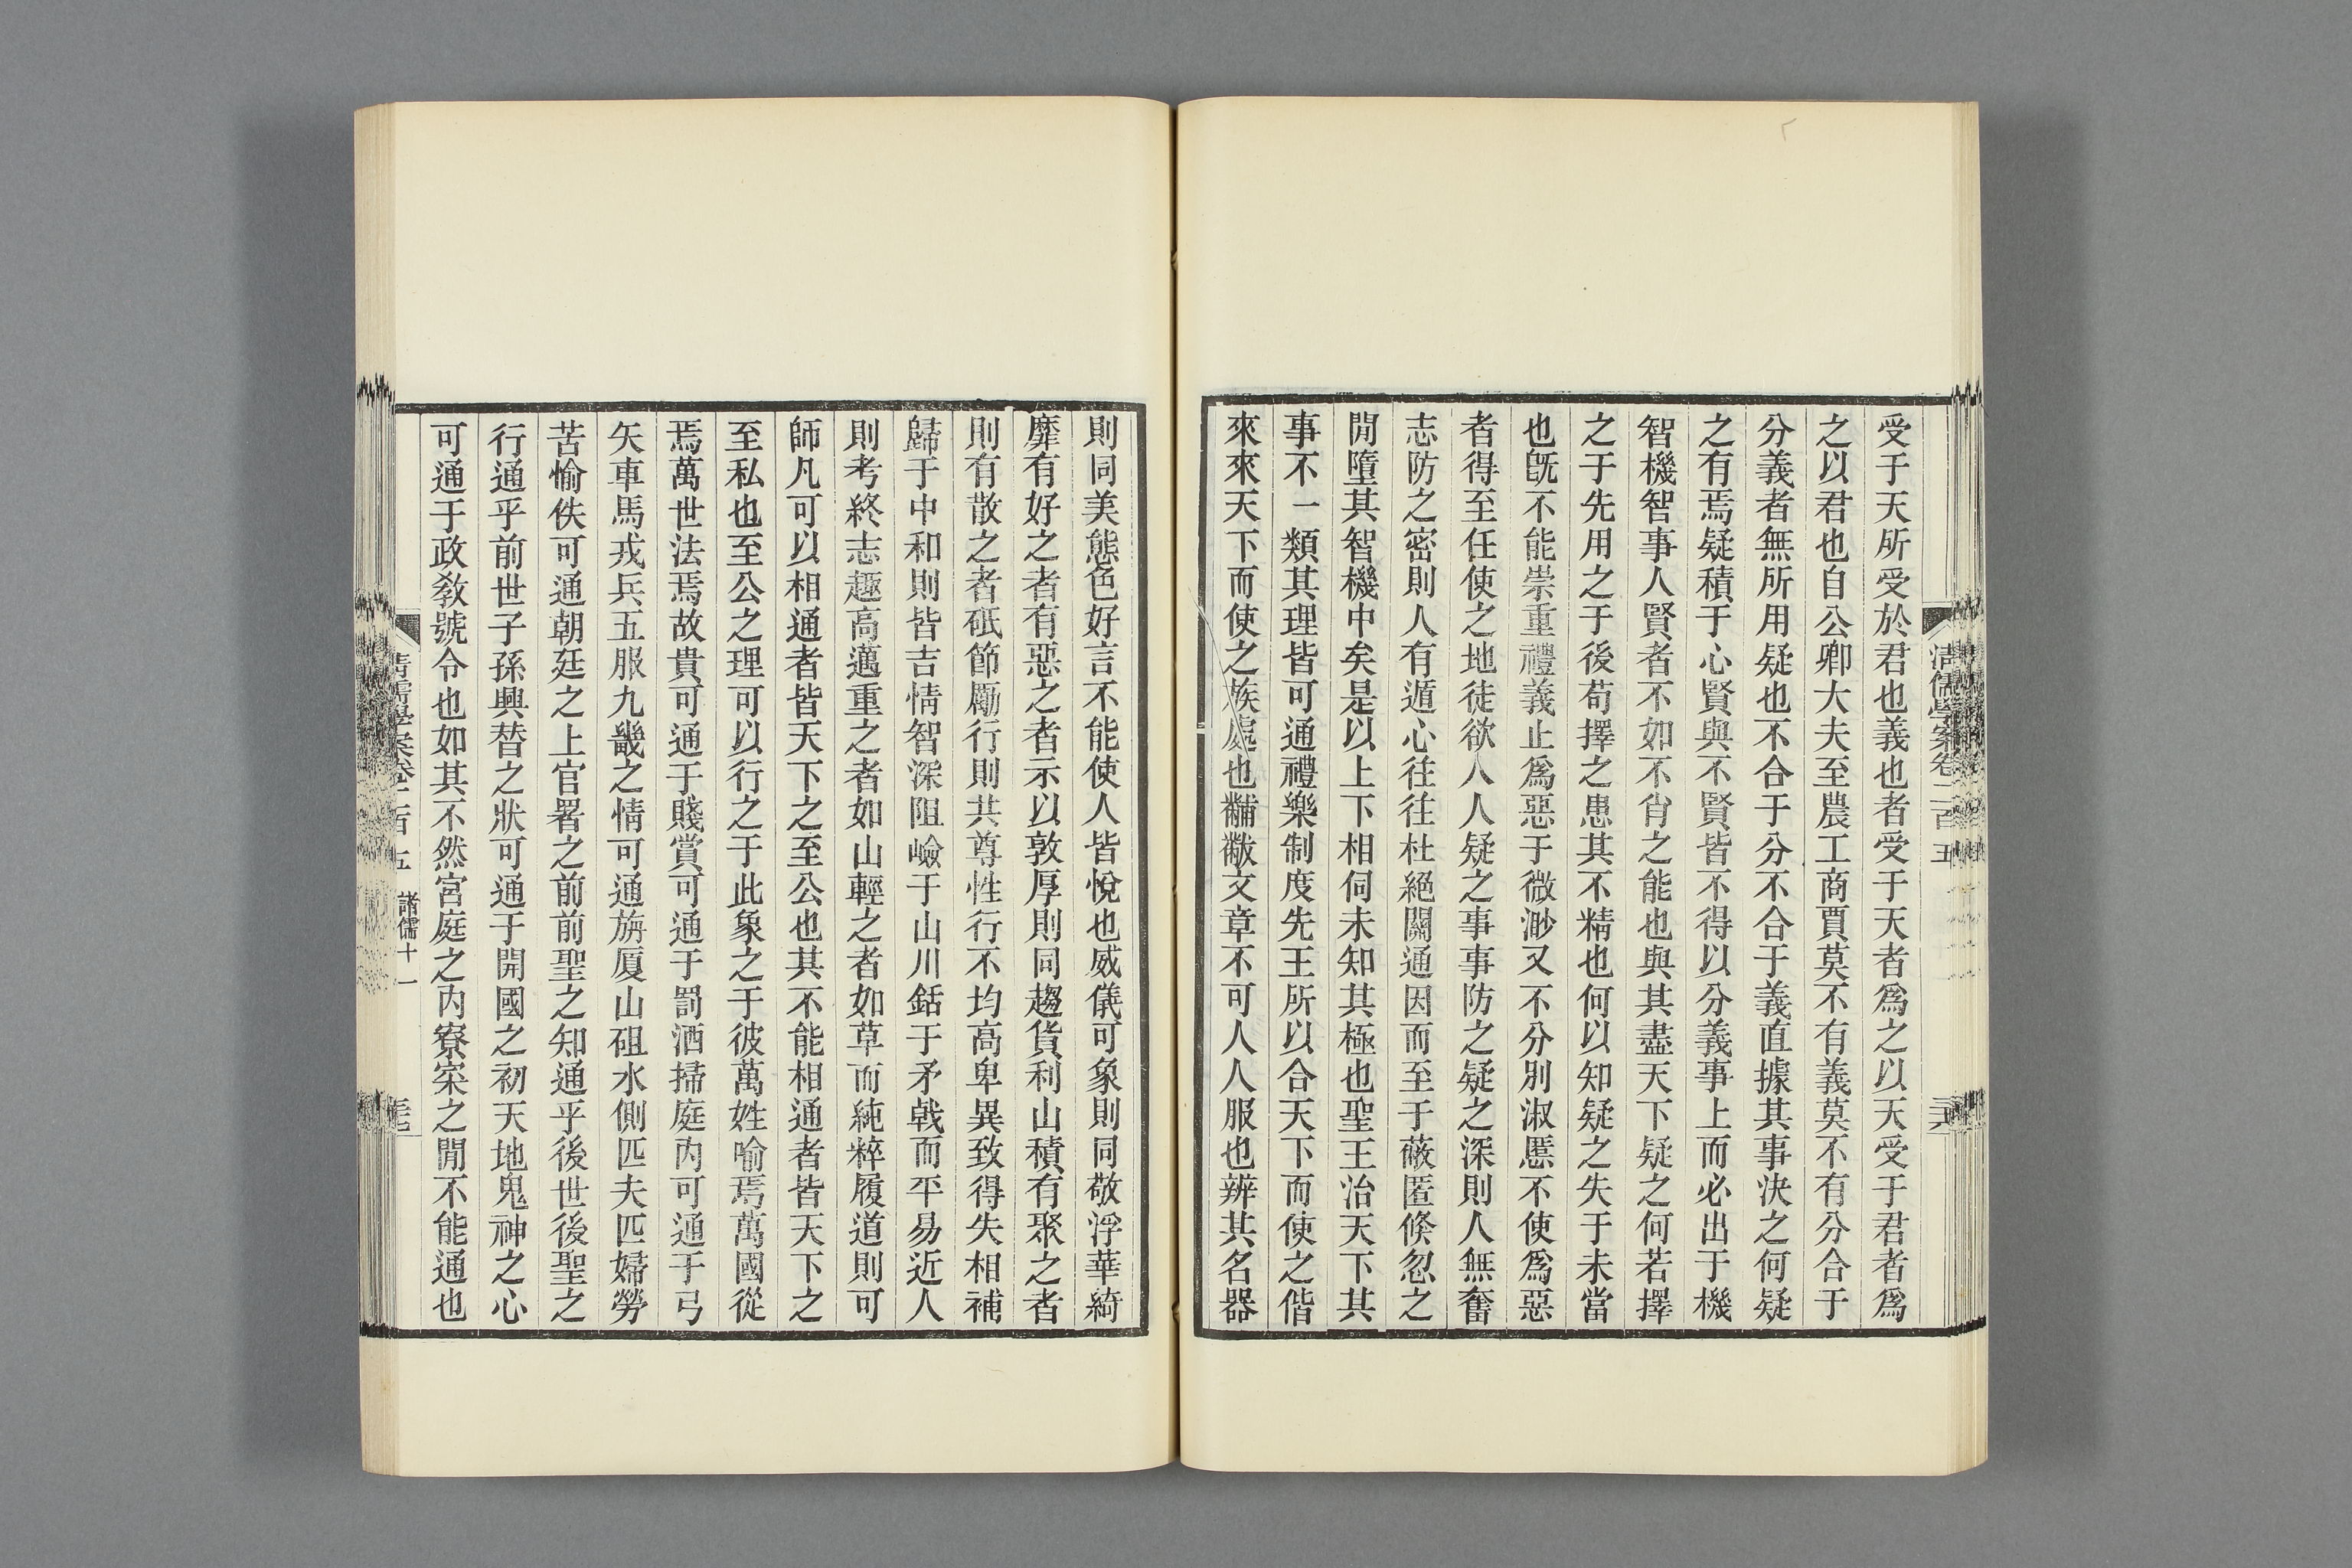 清儒學案卷二百五
受于天所受於君也義也者受于天者爲之以天受于君者爲
之以君也自公卿大夫至農工商賈莫不有義莫不有分合于
分義者無所用疑也不合于分不合于義直據其事決之何疑
之有焉疑積于心賢與不賢皆不得以分義事上而必出于機
智機智事人賢者不如不肖之能也與其盡天下疑之何若擇
之于先用之于後苟擇之患其不精也何以知疑之失于未當
也旣不能崇重禮義止爲惡于微渺又不分別淑慝不使爲惡
者得至任使之地徒欲人人疑之事事防之疑之深則人無奮
志防之密則人有遁心往往杜絕關通因而至于蔽匿倏忽之
閒墮其智機中矣是以上下相伺未知其極也聖王治天下其
事不一類其理皆可通禮樂制度先王所以合天下而使之偕
來來天下而使之族處也黼黻文章不可人人服也辨其名器
則同美態色好言不能使人皆悅也威儀可象則同敬浮華綺
靡有好之者有惡之者示以敦厚則同趨貨利山積有聚之者
則有散之者砥節勵行則共尊性行不均高卑異致得失相補
歸于中和則皆吉情智深阻嶮于山川銛于矛戟而平易近人
則考終志趣高邁重之者如山輕之者如草而純粹履道則可
師凡可以相通者皆天下之至公也其不能相通者皆天下之
至私也至公之理可以行之于此象之于彼萬姓喻焉萬國從
焉萬世法焉故貴可通于賤賞可通于罰洒掃庭內可通于弓
矢車馬戎兵五服九畿之情可通旃厦山砠水側匹夫匹婦勞
苦愉佚可通朝廷之上官署之前前聖之知通乎後世後聖之
行通乎前世子孫興替之狀可通于開國之初天地鬼神之心
可通于政敎號令也如其不然宮庭之內寮寀之閒不能通也
清儒學案卷二百五 諸儒十一